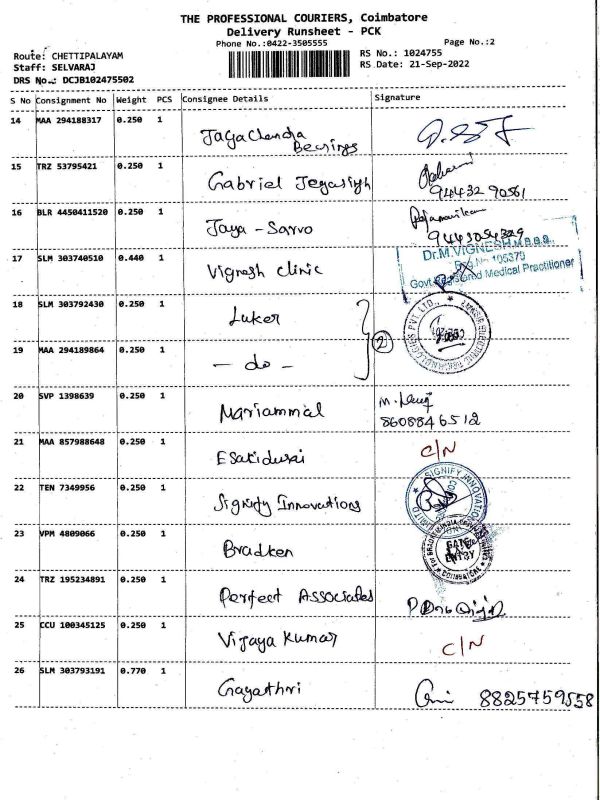 THE PROFESSIONAL COURIERS, Coimbatore
Delivery Runsheet - PCK
Phone No.:0422-3505555 Page No.:2
Route: CHETTIPALAYAM RS No.: 1024755
Staff: SELVARAJ RS Date: 21-Sep-2022
DRS No.: DCJB102475502
S No Consignment No Weight PCS Consignee Details Signature
14 MAA 294188317 0.250 1 Jaya Chandra
Bearings
15 TRZ 53795421 0.250 1 Gabriel Jegasingh
94432 90561
16 BLR 4450411520 0.250 1 Jaya - Sarvo
9443054329
17 SLM 303740510 0.440 1 Vignesh clinic
Dr.M.VIGNESH,M.B.B.S.,
Reg No 105379
Govt.Registered Medical Practitioner
18 SLM 303792430 0.250 1 Luker
LUKER ELECTRIC TECHNOLOGIES PVT. LTD.,
19 MAA 294189864 0.250 1 - do - 2
20 SVP 1398639 0.250 1 Mariammal
8608846512
21 MAA 857988648 0.250 1 Esakidurai C/N
22 TEN 7349956 0.250 1 Signify Innovations
SIGNIFY INNOVATION
23 VPM 4809066 0.250 1 Bradken
GATE
ENTRY
COIMBATORE
24 TRZ 195234891 0.250 1 Perfect Associates
25 CCU 100345125 0.250 1 Vijaya Kumar C/N
26 SLM 303793191 0.770 1 Gayathri 8825759558